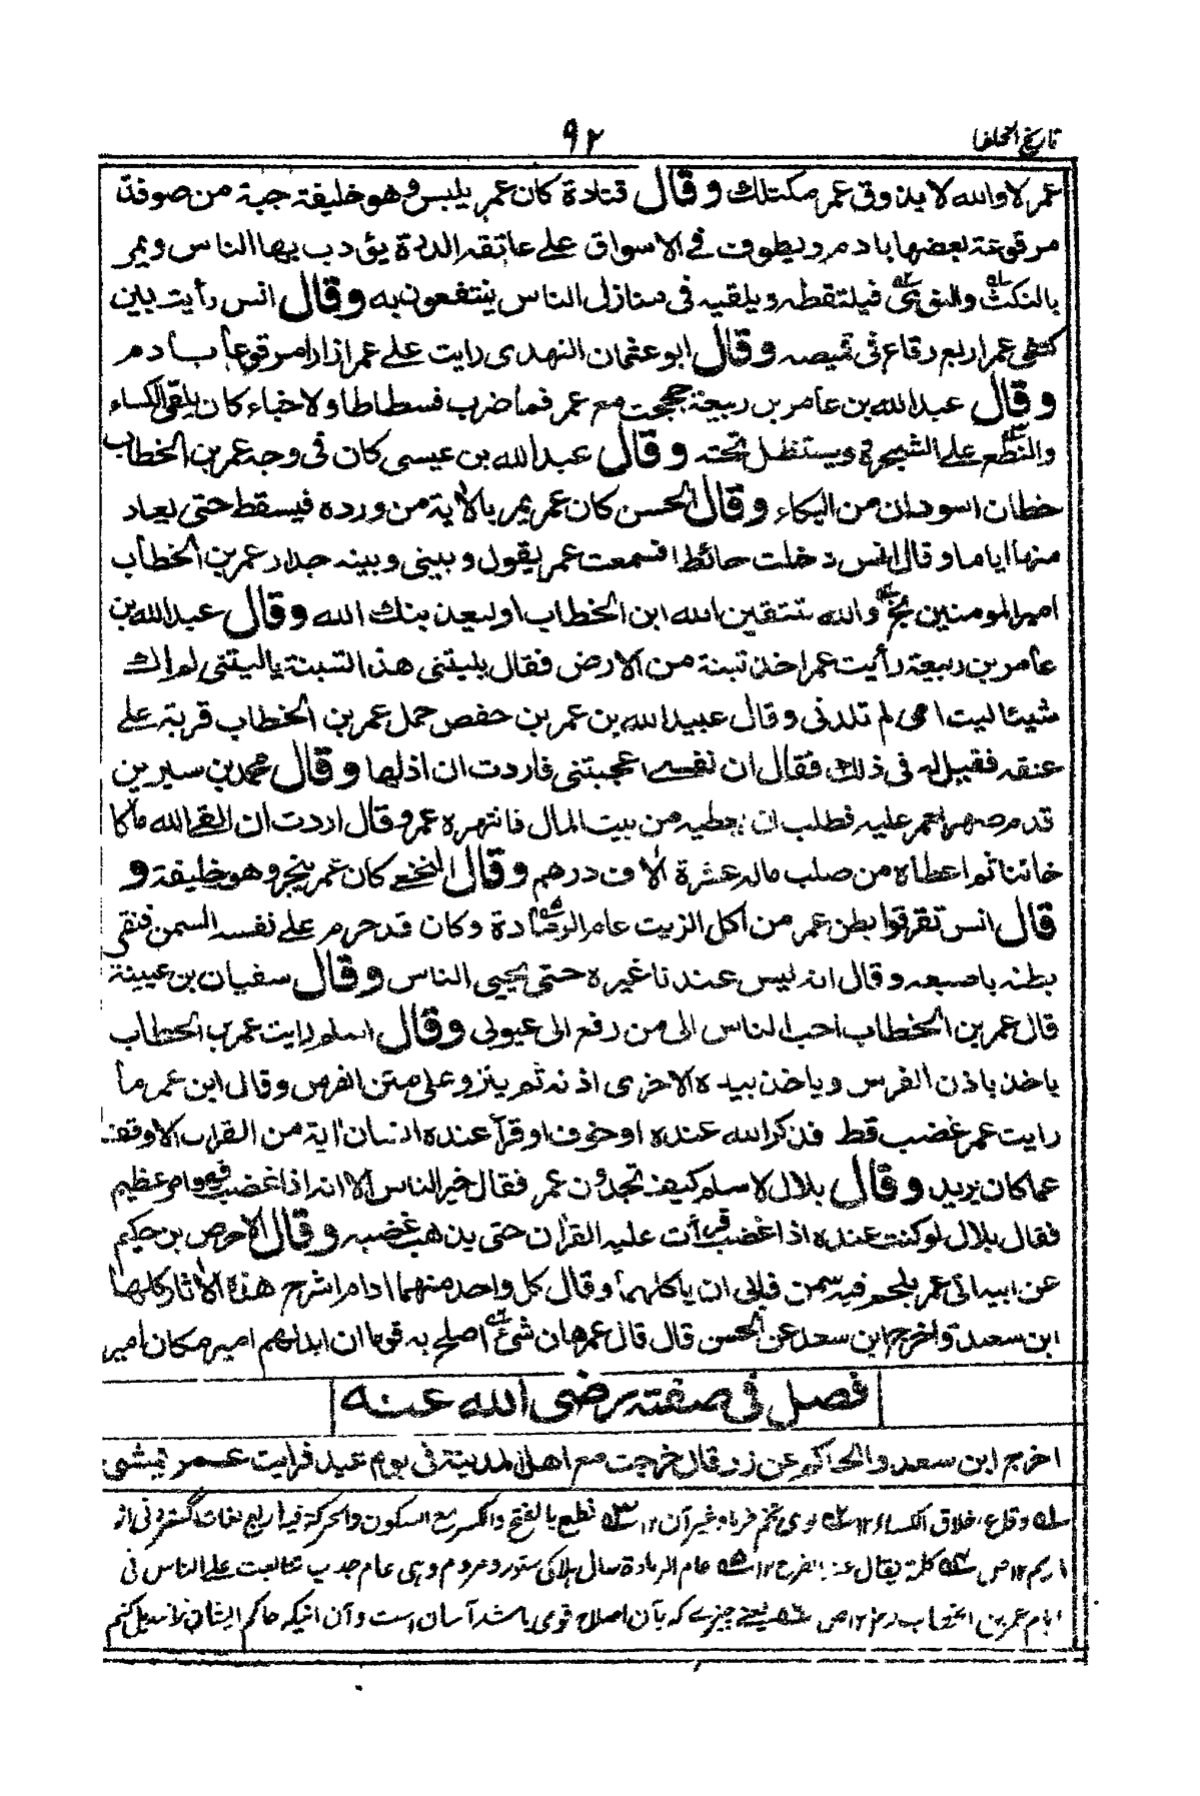 تاريخ الخلفا
٩٢
عمر لا والله لا يذوق عمر مكتلك وقال قتادة كان عمر يلبس وهو خليفة جبة من صوف
مرقوعة بعضها بادم ويطوف في الاسواق على عاتقه الدرة يؤدب بها الناس ويمر
بالنكث والنوى فيلتقطه ويلقيه فى منازل الناس ينتفعون به وقال انس رأيت بين
كتفى عمر اربع رقاع فى قميصه وقال ابو عثمان النهدى رايت على عمر ازارا مرقوعا بادم
وقال عبد الله بن عامر بن ربيعة حججت مع عمر فما ضرب فسطاطا ولا خباء كان يلقى الكساء
والنطع على الشجرة ويستظل تحته وقال عبد الله بن عيسى كان فى وجه عمر بن الخطاب
خطان اسودان من البكاء وقال الحسن كان عمر يمر بالاية من ورده فيسقط حتى يعاد
منها اياما وقال انس دخلت حائطا فسمعت عمر يقول وبينى وبينه جدار عمر بن الخطاب
امير المومنين بخ والله لتتقين الله ابن الخطاب او ليعذبنك الله وقال عبد الله بن
عامر بن ربيعة رأيت عمر اخذ تبنة من الارض فقال يليتنى هذا التبنة ياليتنى لم اك
شيئا ليت امى لم تلدنى وقال عبيد الله بن عمر بن حفص حمل عمر بن الخطاب قربة على
عنقه فقيل له فى ذلك فقال ان نفسى اعجبتنى فاردت ان اذلها وقال محمد بن سيرين
قدم صهر لعمر عليه فطلب ان يعطيه من بيت المال فانتهره عمر وقال اردت ان القى الله ملكا
خائنا ثم اعطاه من صلب ماله عشرة الاف درهم وقال النخعى كان عمر يتجر وهو خليفة و
قال انس تقرقر بطن عمر من اكل الزيت عام الرمادة وكان قد حرم على نفسه السمن فنقر
بطنه باصبعه وقال انه ليس عندنا غيره حتى يحيى الناس وقال سفيان بن عيينة
قال عمر بن الخطاب احب الناس الى من رفع الى عيوبى وقال اسلم رايت عمر بن الخطاب
ياخذ باذن الفرس وياخذ بيده الاخرى اذنه ثم ينزو على متن الفرس وقال ابن عمر ما
رايت عمر غضب قط فذكر الله عنده او خوف او قرأ عنده انسان اية من القران الا وقف
عما كان يريد وقال بلال لاسلم كيف تجدون عمر فقال خير الناس الا انه اذا غضب فهو امر عظيم
فقال بلال لو كنت عنده اذا غضب قرأت عليه القرأن حتى يذهب غضبه وقال الاحوص بن حكيم
عن ابيه اتى عمر بلحم فيه سمن فابى ان ياكلهما وقال كل واحد منهما ادم اخرج هذه الأثار كلها
ابن سعد واخرج ابن سعد عن الحسن قال قال عمر هان شئ اصلح به قوما ان ابدلهم امير مكان امير
فصل فى صفته رضى الله عنه
اخرج ابن سعد والحاكم عن زر قال خرجت مع اهل المدينة فى يوم عيد فرايت عمر يمشى
اخلاق الكساء ١٢ تخم خرما وغير آن ١٢ نطع بالفتح والكسر مع السكون والحركة فيه اربع لغات گستردنى از
اديم ١٢ ص كلمة يقال عند الفرح ١٢ عام الرمادة سال هلاكى ستور ومردم وهى عام جدب تتابعت على الناس فى
ايام عمر بن الخطاب رض ١٢ ص يعنى چيزے كه بآن اصلاح قوى باشد آسان است وآن اينكه حاكم ايشان تبديل كنم